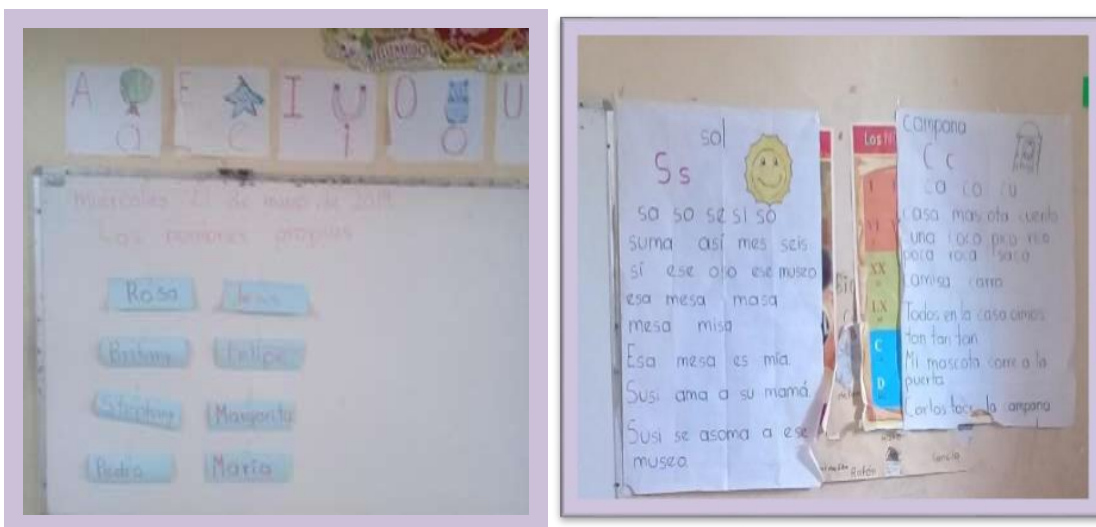 A
a
E
e
I
i
O
o
U
miércoles de 2019
Los nombres propios
Rosa
Jesus
Britany
Felipe
Stephany
Margarita
Pedro
María
sol
S s
sa so se si so
suma así mes seis
sí ese oso ese museo
esa mesa masa
mesa misa
Esa mesa es mía.
Susi ama a su mamá.
Susi se asoma a ese
museo.
Los
I
VI
XX
LX
C
D
Ratón
campana
C c
ca co cu
casa mascota cuento
una loco pico rico
poca roca saco
camisa carro
Todos en la casa oímos
tan tan tan
Mi mascota corre a la
puerta
Carlos toca la campana